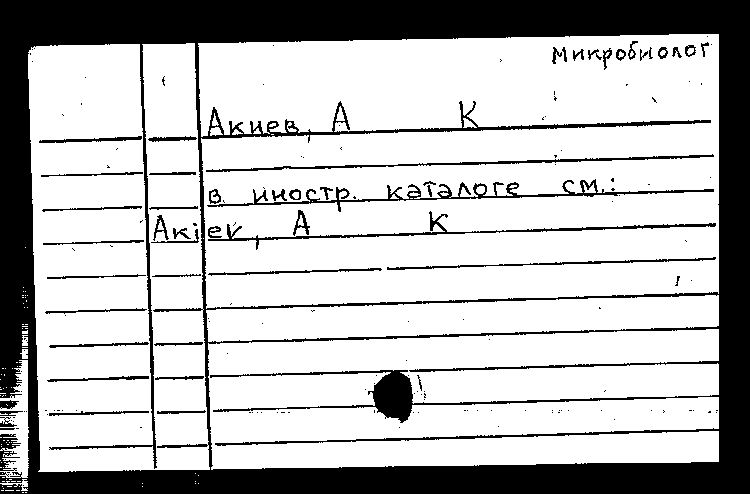 Микробиолог
Акиев, А К
в иностр. каталоге см.:
Akiev, A K